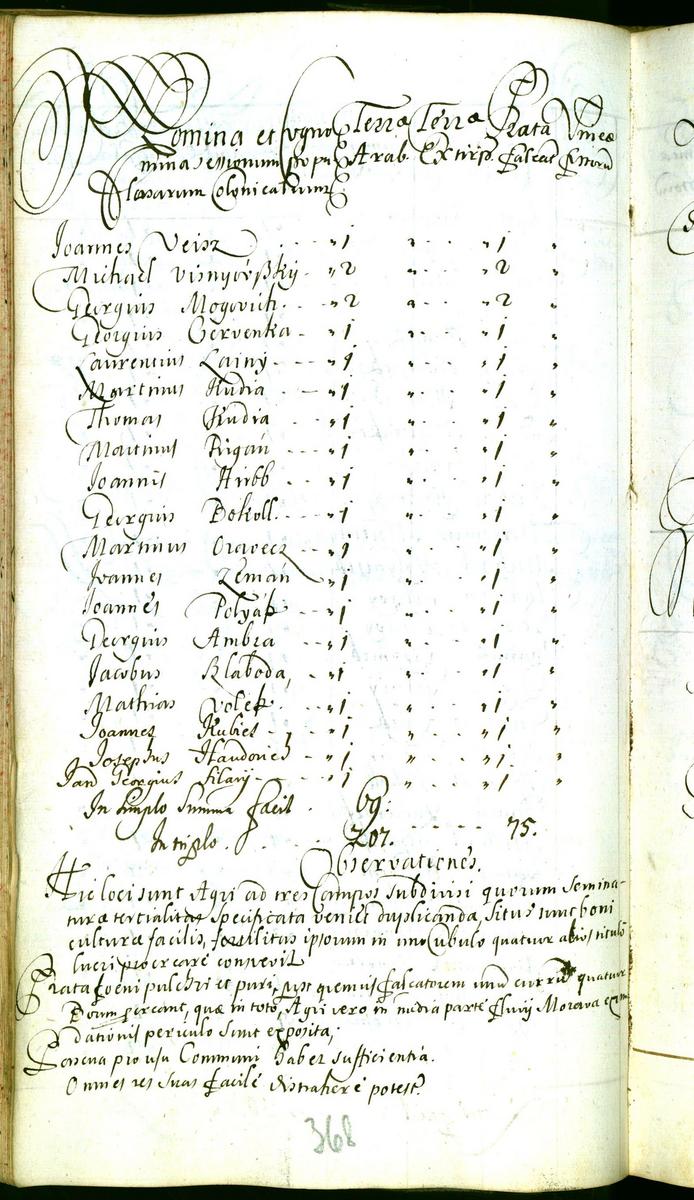 Nomina et Cogno Terræ Terræ Prata Vineæ
mina sessionum popu Arab. Extirp. falcat. fossorū
losarum Colonicarum
Joannes Veisz . . . „ 1 „ . . . „ 1 „
Michael Visnyovßky . . „ 2 „ . . . „ 2 „
Georgius Mogovich . . „ 2 „ . . . „ 2 „
Georgius Cervenka . . „ 1 „ . . . „ 1 „
Laurentius Lainy . . . „ 1 „ . . . „ 1 „
Martinus Kudia . . . „ 1 „ . . . „ 1 „
Thomas Kudia . . . „ 1 „ . . . „ 1 „
Martinus Rigan . . . „ 1 „ . . . „ 1 „
Joannis Hubb . . . „ 1 „ . . . „ 1 „
Georgius Bokoll . . . „ 1 „ . . . „ 1 „
Martinus Oravecz . . . „ 1 „ . . . „ 1 „
Joannes Zeman „ 1 „ . . . „ 1 „
Joannes Polyak . . . „ 1 „ . . . „ 1 „
Georgius Ambra . . . „ 1 „ . . . „ 1 „
Jacobus Klaboda, . . „ 1 „ . . . „ 1 „
Mathias Volek . . . „ 1 „ . . . „ 1 „
Joannes Kubies . . . „ 1 „ . . . „ 1 „
Josephus . . . „ 1 „ . . . „ 1 „
Georgius Filary . . . „ 1 „ . . . „ 1 „
In simplo Summa facit . 69.
In triplo . . . . 207. . . . . . 75.
Observationes.
Hic loci sunt Agri ad tres Campos subdivisi quorum semina-
turæ tertialitas specificata veniet duplicanda, situs sunt boni
culturæ facilis, fertilitas ipsorum in uno Cubulo quatuor titulo
lucri procreare consvevit
Prata foeni pulchri et puri, sunt quemvis falcatorem unū currū quatuor
Boum ferant, quæ in toto, Agri vero in media parte fluvij Morava exun
dationis periculo sunt exposita,
Pascua pro usu Communi habet sufficientia.
Omnes res suas facile distrahere potest.
368